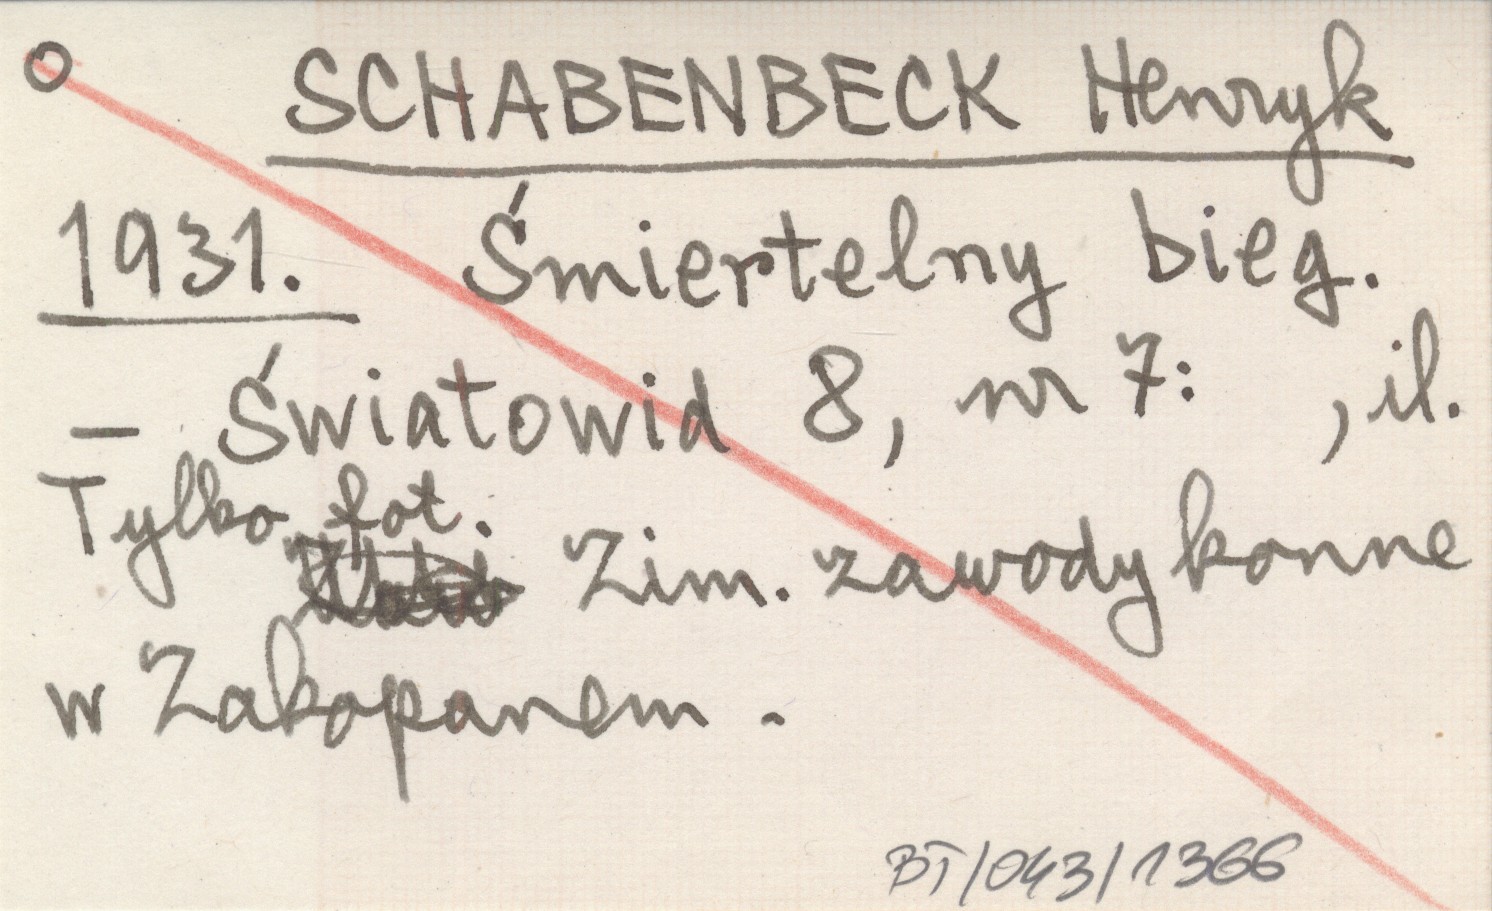 SCHABENBECK Henryk
1931. Śmiertelny bieg.
– Światowid 8, nr 7: , il.
Tylko fot.
Zim. zawody konne
w Zakopanem.
BT/043/1366